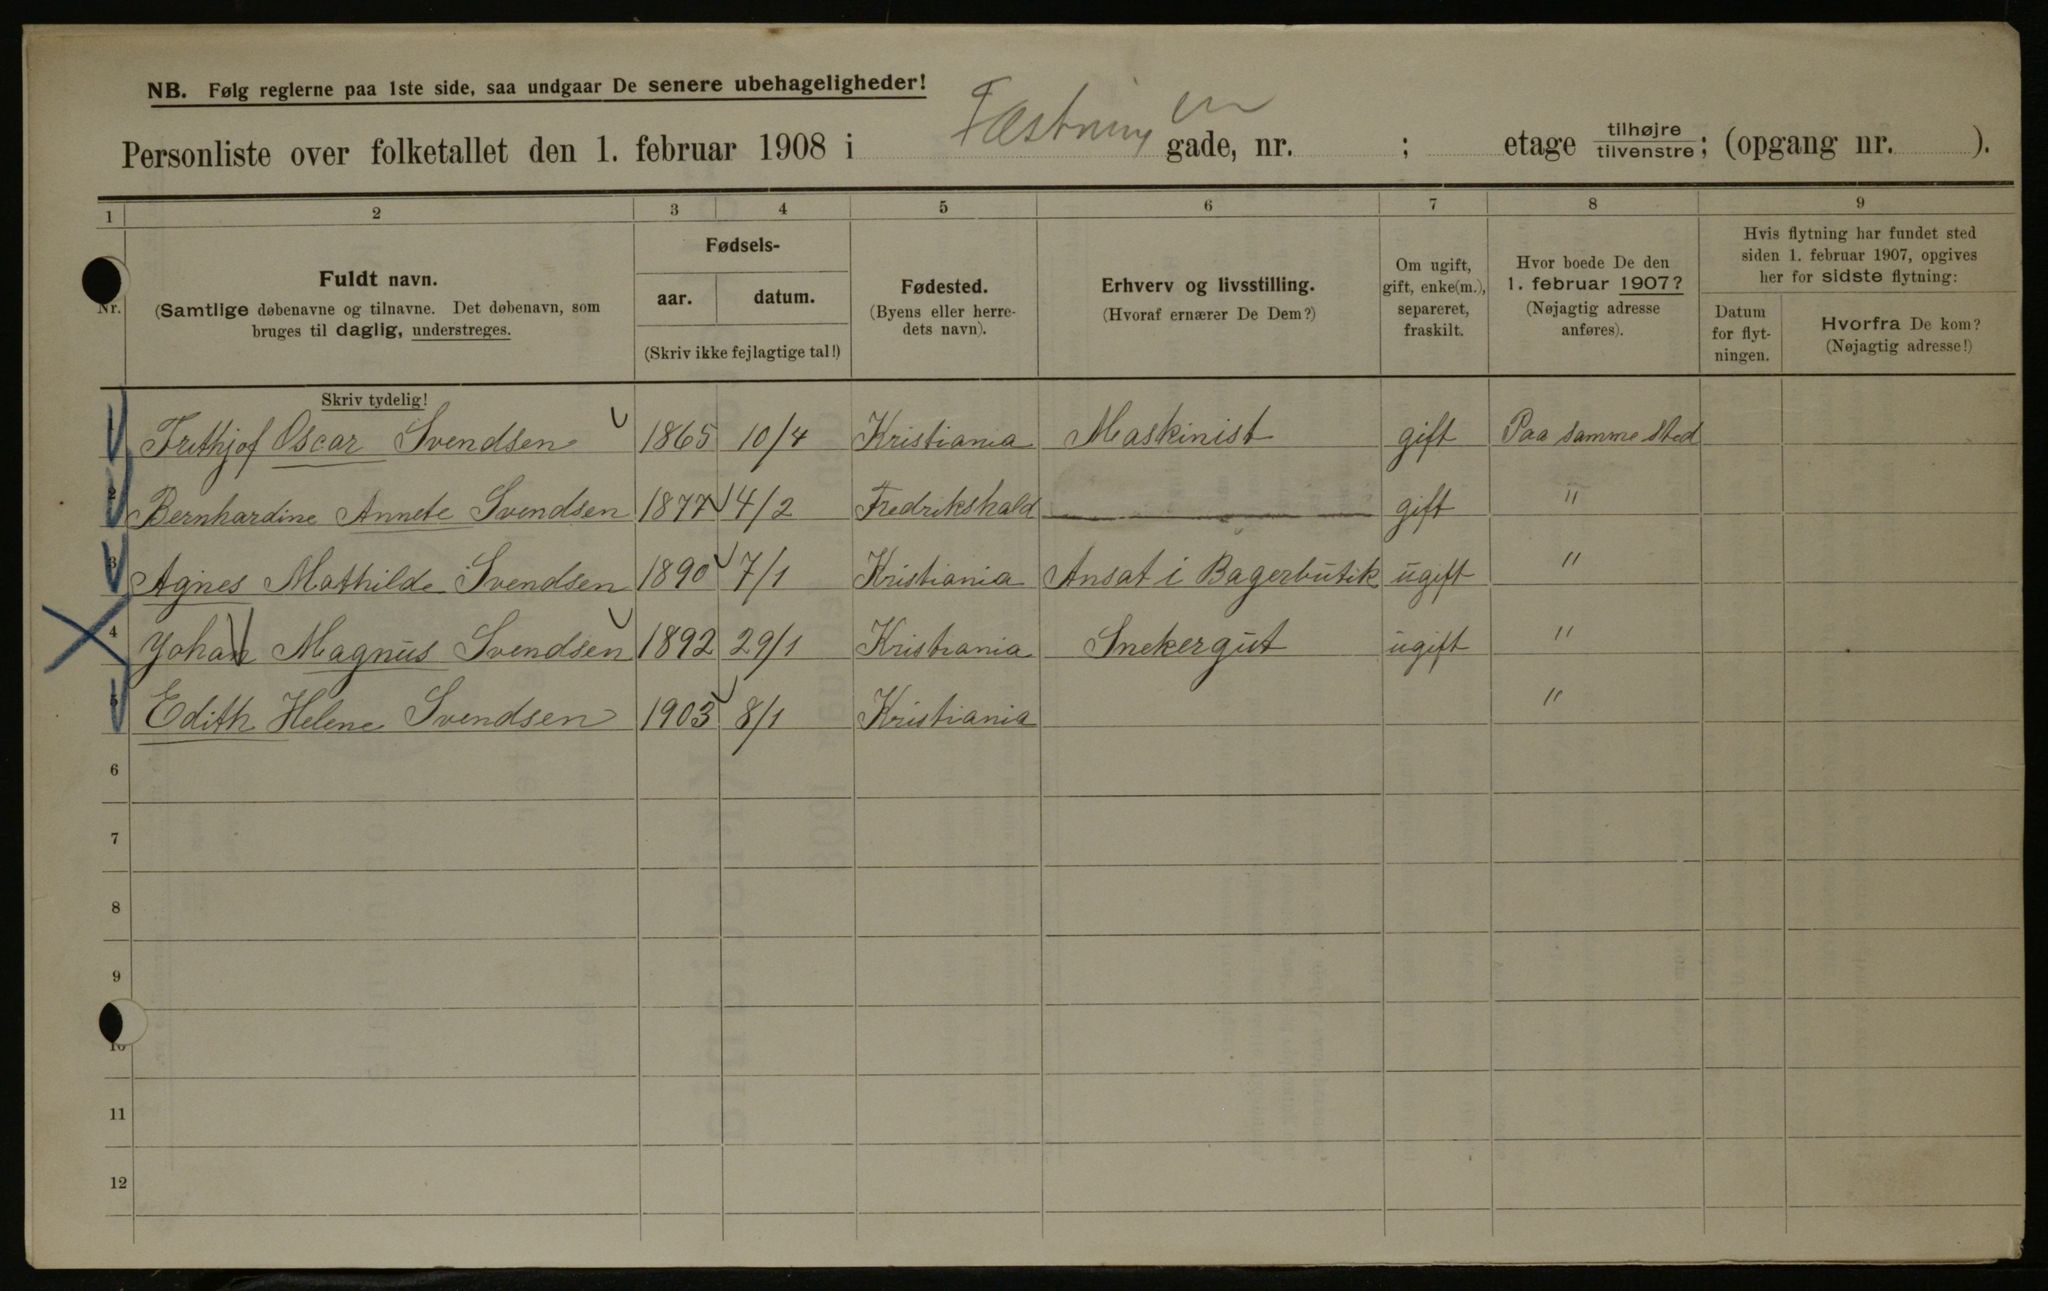 NB. Følg reglerne paa 1ste side, saa undgaar De senere ubehageligheder!
Personliste over folketallet den 1. februar 1908 i Fæstningen gade, nr. ; etage tilhøjre tilvenstre; (opgang nr. ).
1 2 3 4 5 6 7 8 9
Nr.
Fuldt navn.
(Samtlige døbenavne og tilnavne. Det døbenavn, som
bruges til daglig, understreges.
Skriv tydelig!
Fødsels-
aar. datum.
(Skriv ikke fejlagtige tal!)
Fødested.
(Byens eller herre-
dets navn).
Erhverv og livsstilling.
(Hvoraf ernærer De Dem?)
Om ugift,
gift, enke(m.),
separeret,
fraskilt.
Hvor boede De den
1. februar 1907?
(Nøjagtig adresse
anføres).
Hvis flytning har fundet sted
siden 1. februar 1907, opgives
her for sidste flytning:
Datum
for flyt-
ningen.
Hvorfra De kom?
(Nøjagtig adresse!)
1 Frithjof Oscar Svendsen 1865 10/4 Kristiania Maskinist gift Paa samme sted
2 Bernhardine Annete Svendsen 1877 4/2 Fredrikshald gift "
3 Agnes Mathilde Svendsen 1890 7/1 Kristiania Ansat i Bagerbutik ugift "
4 Yohan Magnus Svendsen 1892 29/1 Kristiania Snekergut ugift "
5 Edith Helene Svendsen 1903 8/1 Kristiania "
6
7
8
9
10
11
12